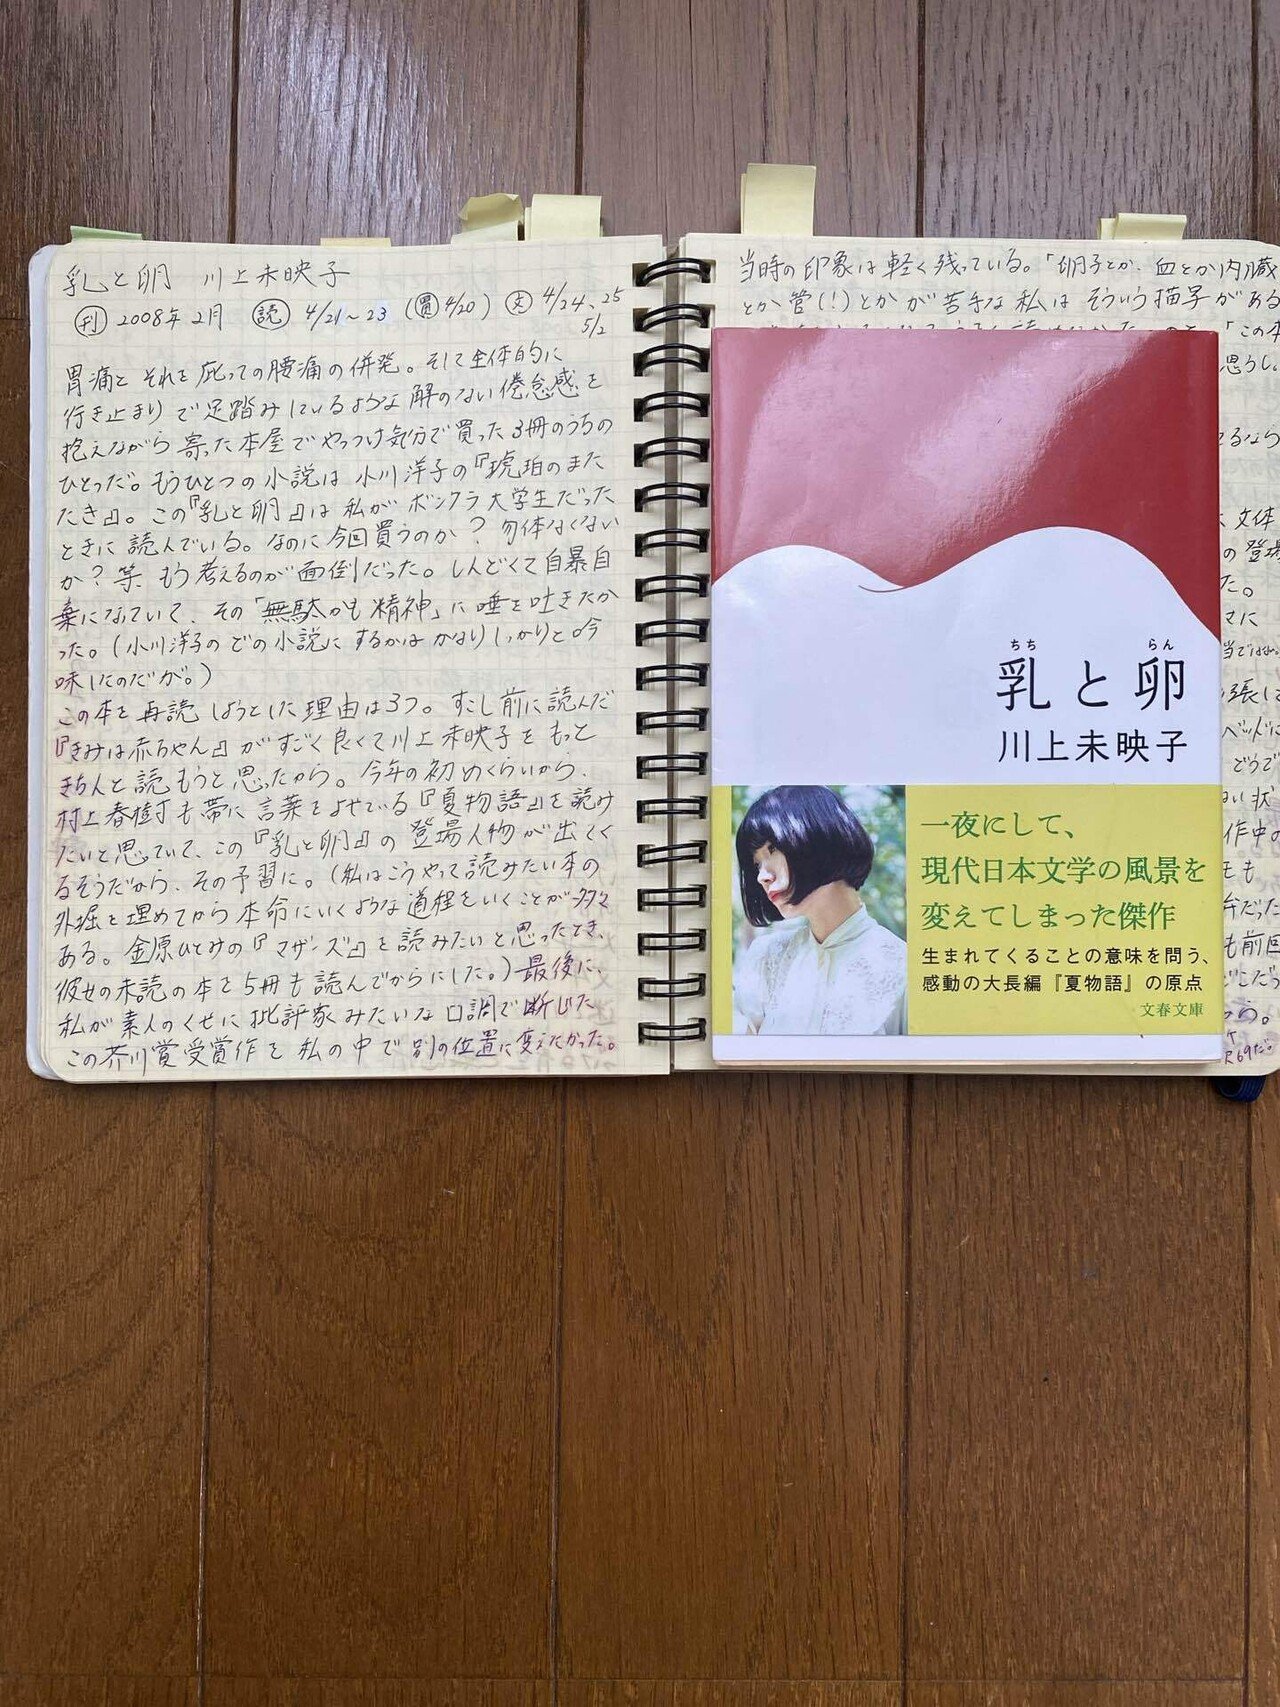 乳と卵 川上未映子
刊 2008年2月 読 4/21~23 (買4/20) 文 4/24、25
5/2
胃痛と それを庇っての腰痛の併発。そして全体的に
行き止まりで足踏みしているような解のない倦怠感を
抱えながら寄った本屋でやっつけ気分で買った3冊のうちの
ひとつだ。もうひとつの小説は小川洋子の『琥珀のまた
たき』。この『乳と卵』は私がボンクラ大学生だった
ときに読んでいる。なのに今回買うのか?勿体なくない
か?等、もう考えるのが面倒だった。しんどくて自暴自
棄になっていて、その「無駄かも精神」に唾を吐きたか
った。(小川洋子のどの小説にするかはかなりしっかりと吟
味したのだが。)
この本を再読しようとした理由は3つ。すこし前に読んだ
『きみは赤ちゃん』がすごく良くて川上未映子をもっと
きちんと読もうと思ったから。今年の初めくらいから、
村上春樹も帯に言葉をよせている『夏物語』を読み
たいと思っていて、この『乳と卵』の登場人物が出てく
るそうだから、その予習に。(私はこうやって読みたい本の
外堀を埋めてから本命にいくような道程をいくことが多々
ある。金原ひとみの『マザーズ』を読みたいと思ったとき、
彼女の未読の本を5冊も読んでからにした。)最後に、
私が素人のくせに批評家みたいな口調で断じた
この芥川賞受賞作を私の中で別の位置に変えたかった。
当時の印象は軽く残っている。「卵子とか、血とか内臓
とか管(!)とかが苦手な私はそういう描写がある
「この本
思うし。
るなら
文体
の登場
た。
に
張し
ベッドに
どうで
い状
作中の
も
だった
も前回
どこだっ
ら。
69だ。
乳と卵
ちち らん
川上未映子
一夜にして、
現代日本文学の風景を
変えてしまった傑作
生まれてくることの意味を問う、
感動の大長編『夏物語』の原点
文春文庫